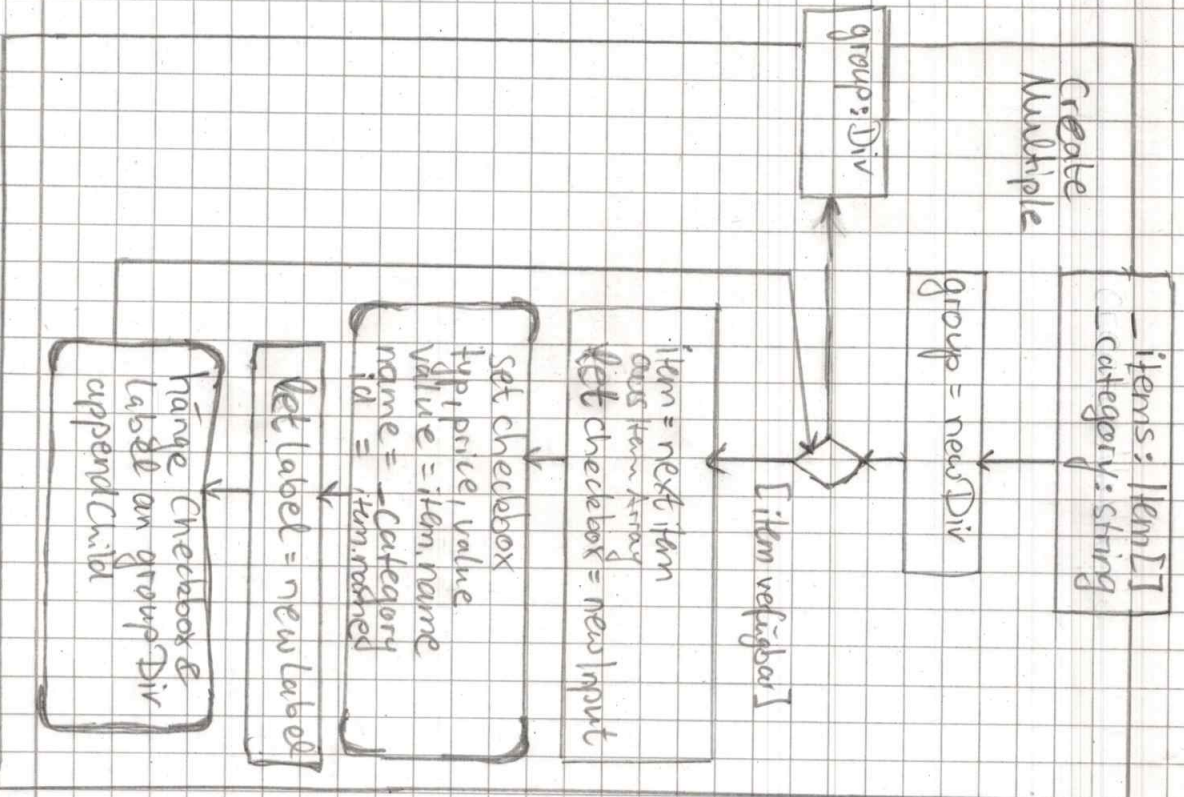 Create
Multiple
_items: Item[]
_category: String
group = newDiv
group: Div
[item verfügbar]
item = next item
aus ItemArray
let checkbox = newInput
set checkbox
typ, price, value
value = item.name
name = _category
id =
let label = newlabel
hänge Checkbox &
label an groupDiv
appendChild